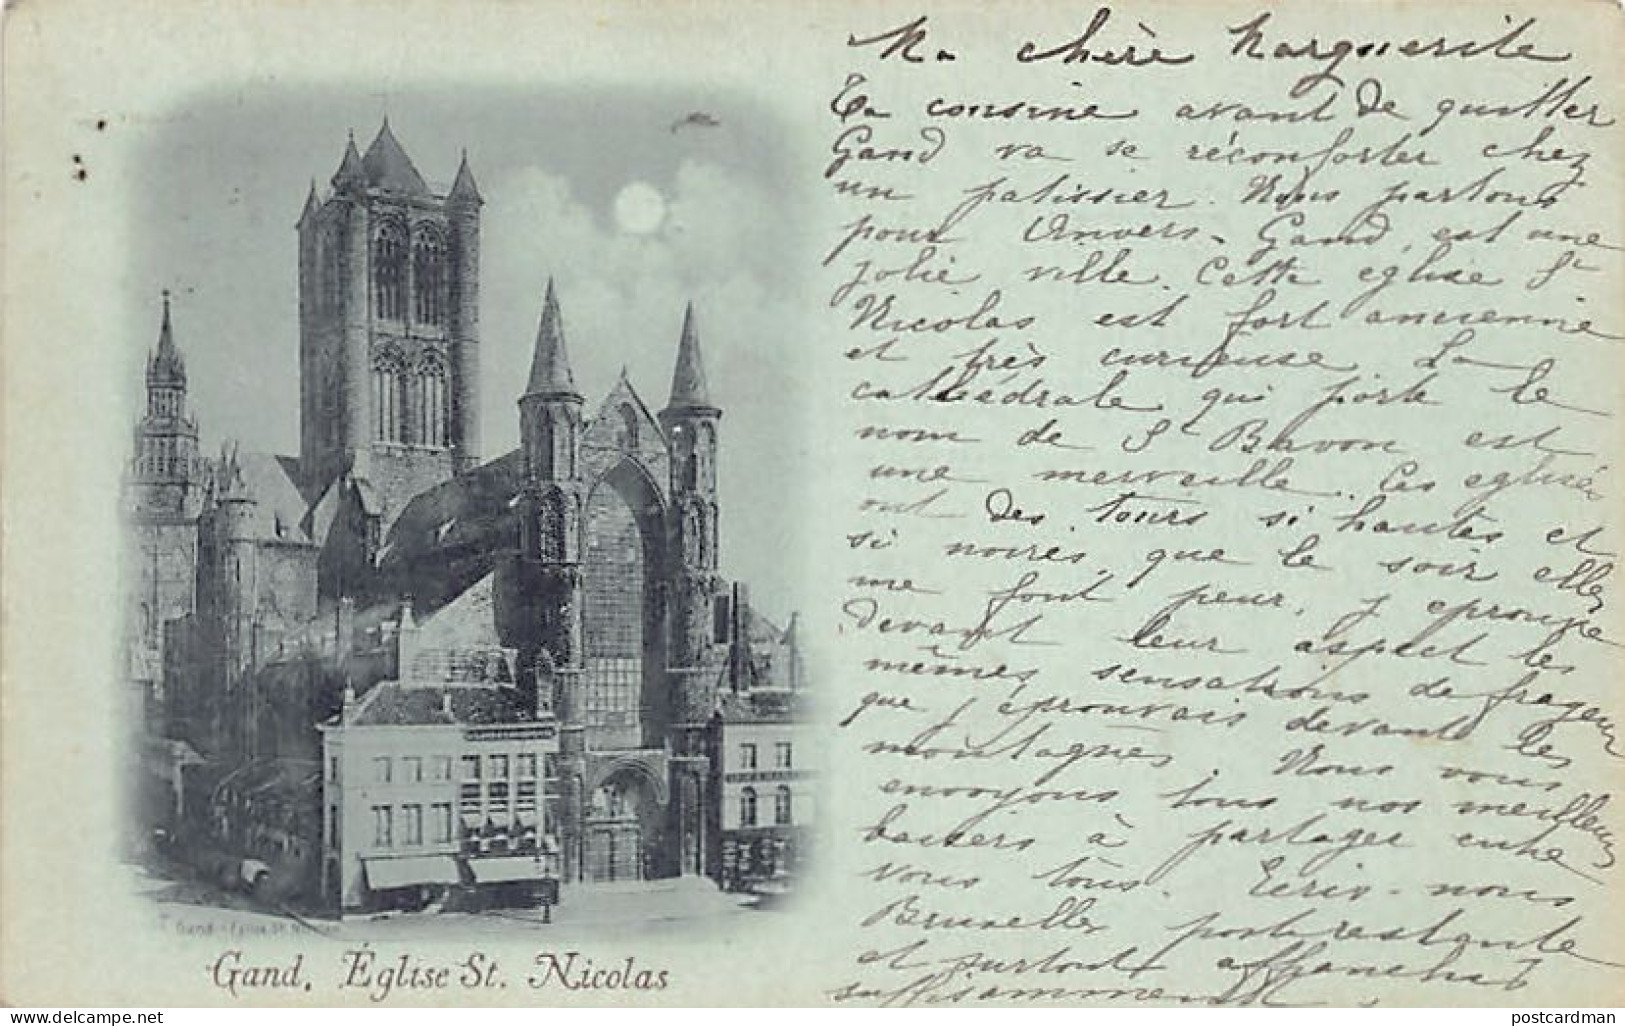 Ma chère Marguerite
Ta cousine avant de quitter
Gand va se réconforter chez
un patissier. Nous partons
pour Anvers. Gand, est une
jolie ville. Cette eglise St
Nicolas est fort ancienne
et très curieuse. La
cathédrale qui porte le
nom de St Bavon est
une merveille. Ces eglises
ont des tours si hautes et
si noires, que le soir elles
me font peur, j'eprouve
devant leur aspect les
mêmes sensations de frayeur
que j'éprouvais devant les
montagnes. Nous vous
envoyons tous nos meilleurs
baisers à partager entre
vous tous. Ecris-nous
Bruxelles poste restante
et surtout affranchis
suffisamment.
Gand - Eglise St. Nicolas
Gand, Église St. Nicolas
delcampe.net
postcardman